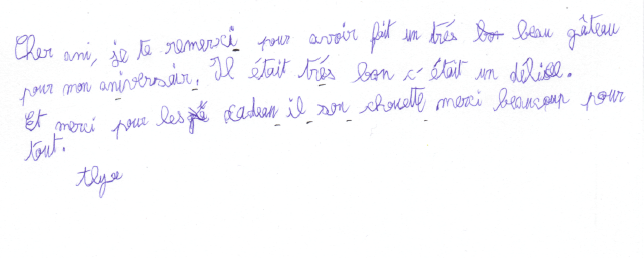 Cher ami, je te remerci pour avoir fait un trés beau gâteau
pour mon aniversair. Il était trés bon c'était un délise.
Et merci pour les cadeau il son chouette merci beaucoup pour
tout.